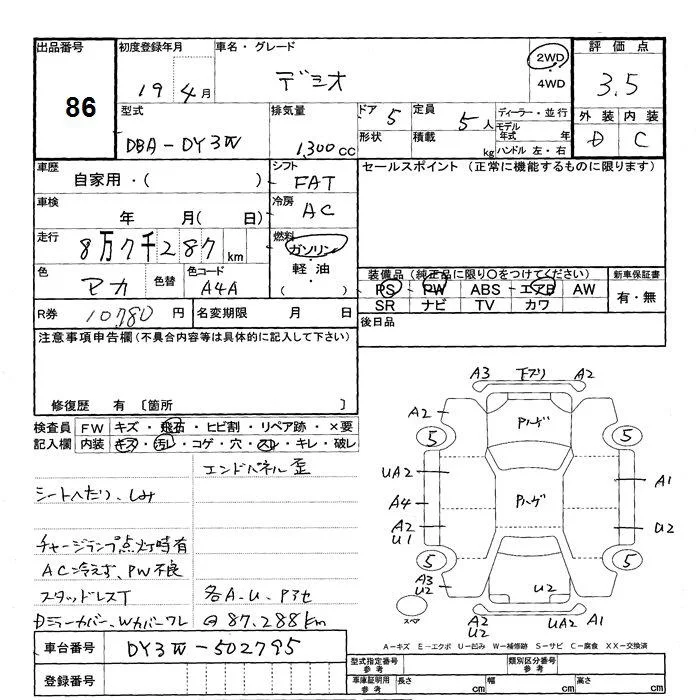 出品番号 初度登録年月 車名・グレード 評価点
86 19年 4月 デミオ 2WD 4WD 3.5
外装 内装
D C
型式 排気量 ドア 5 定員 5人 ディーラー・並行
DBA-DY3W 1,300cc 形状 積載 kg モデル年式 年
ハンドル 左・右
車歴 シフト セールスポイント (正常に機能するものに限ります)
自家用・( ) FAT
車検 冷房
年 月( 日) AC
走行 燃料
8万7千287km ガソリン・軽油・( )
色 色替 色コード 装備品 (純正品に限り○をつけてください) 新車保証書
アカ A4A PS PW ABS エアB AW 有・無
SR ナビ TV カワ
R券 10,780円 名変期限 月 日 後日品
注意事項申告欄(不具合内容等は具体的に記入して下さい)
修復歴 有 〔箇所 〕
検査員 FW キズ・飛石・ヒビ割・リペア跡・×要
記入欄 内装 キズ・汚レ・コゲ・穴・スレ・キレ・破レ
エンドパネル歪
シートへたり、しみ
チャージランプ点灯時有
AC冷えず、PW不良
スタッドレスT 各A.U.Pアセ
Dミラーカバー、Wカバーワレ @87,288km
A3 下ズリ A2
A2 Pハゲ
5 5
UA2 Pハゲ A1
A4
A2 U2
U1
5 5
A3 U2
U2
スペア A2 UA2 A1
U2
A-キズ E-エクボ U-凹み W-補修跡 S-サビ C-腐食 XX-交換済
車台番号 DY3W-502795
型式指定番号 参考 類別区分番号 参考
登録番号 車庫証明用 参考 長さ cm 幅 cm 高さ cm